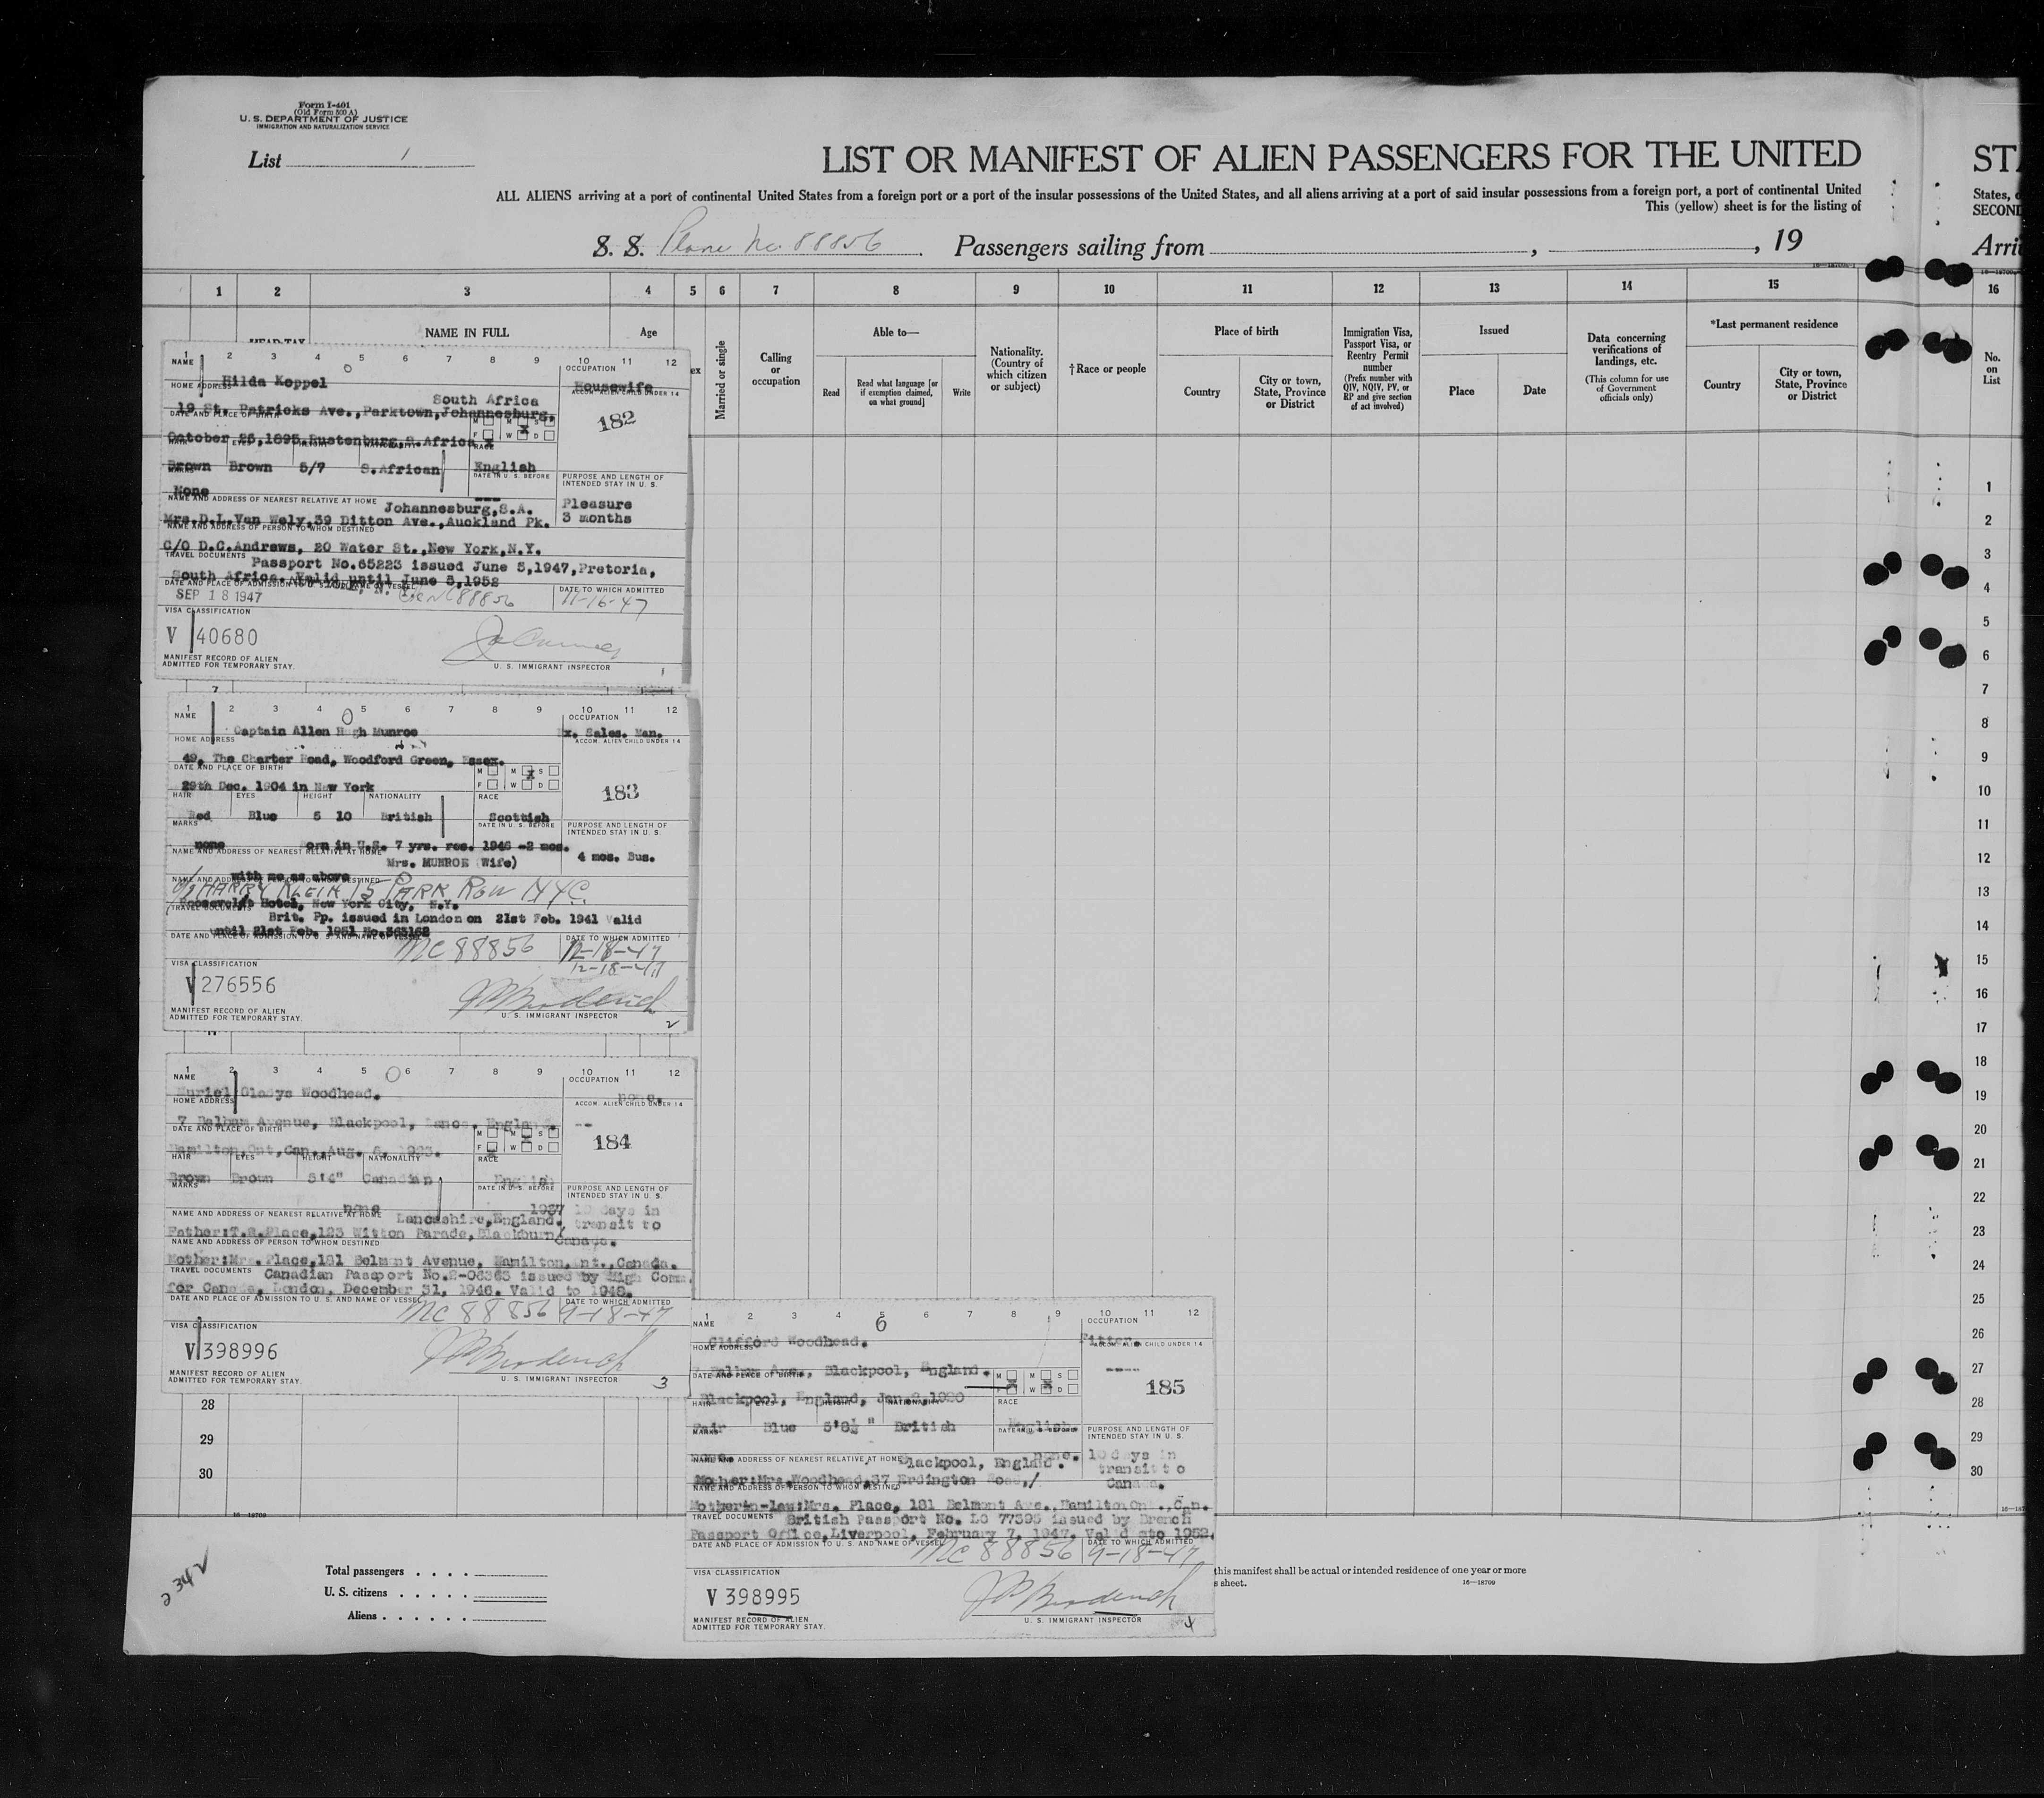 Form I-401
(Old Form 500 A)
U. S. DEPARTMENT OF JUSTICE
IMMIGRATION AND NATURALIZATION SERVICE
List 1
LIST OR MANIFEST OF ALIEN PASSENGERS FOR THE UNITED
ST
ALL ALIENS arriving at a port of continental United States from a foreign port or a port of the insular possessions of the United States, and all aliens arriving at a port of said insular possessions from a foreign port, a port of continental United
States,
This (yellow) sheet is for the listing of
SECOND
S. S. Plane No. 88856 Passengers sailing from , , 19
Arri
1 2 3 4 5 6 7 8 9 10 11 12 13 14 15 16
NAME IN FULL
Age
Married or single
Calling or occupation
Able to—
Read
Read what language [or if exemption claimed, on what ground]
Write
Nationality. (Country of which citizen or subject)
†Race or people
Place of birth
Country
City or town, State, Province or District
Immigration Visa, Passport Visa, or Reentry Permit number
(Prefix number with QIV, NQIV, PV, or RP and give section of act involved)
Issued
Place
Date
Data concerning verifications of landings, etc.
(This column for use of Government officials only)
*Last permanent residence
Country
City or town, State, Province or District
No. on List
1 2 3 4 5 6 7 8 9 10 11 12
NAME
OCCUPATION
Hilda Koppel
Housewife
HOME ADDRESS
ACCOM. ALIEN CHILD UNDER 14
South Africa
19 St. Patricks Ave.,Parktown,Johannesburg.
182
DATE AND PLACE OF BIRTH
M M S
F W D
October 26,1895,Rustenburg,S.Africa
RACE
Brown Brown 5/7 S.African English
MARKS
DATE IN U. S. BEFORE
PURPOSE AND LENGTH OF INTENDED STAY IN U. S.
None
NAME AND ADDRESS OF NEAREST RELATIVE AT HOME
Johannesburg,S.A.
Pleasure
3 months
Mrs.D.L.Van Wely,39 Ditton Ave.,Auckland Pk.
NAME AND ADDRESS OF PERSON TO WHOM DESTINED
C/O D.C.Andrews, 20 Water St.,New York,N.Y.
TRAVEL DOCUMENTS
Passport No.65223 issued June 5,1947,Pretoria,
South Africa. Valid until June 5,1952
DATE TO WHICH ADMITTED
SEP 18 1947
88856
11-16-47
VISA CLASSIFICATION
V 40680
MANIFEST RECORD OF ALIEN
ADMITTED FOR TEMPORARY STAY.
U. S. IMMIGRANT INSPECTOR
1
1 2 3 4 5 6 7 8 9 10 11 12
NAME
OCCUPATION
Captain Allen Hugh Munroe
Ex. Sales. Man.
HOME ADDRESS
ACCOM. ALIEN CHILD UNDER 14
49, The Charter Road, Woodford Green, Essex.
DATE AND PLACE OF BIRTH
M M S
F W D
29th Dec. 1904 in New York
183
HAIR EYES HEIGHT NATIONALITY RACE
Red Blue 5 10 British Scottish
MARKS
DATE IN U. S. BEFORE
PURPOSE AND LENGTH OF INTENDED STAY IN U. S.
none Born in U.S. 7 yrs. res. 1946 -2 mos.
NAME AND ADDRESS OF NEAREST RELATIVE AT HOME
Mrs. MUNROE (Wife)
4 mos. Bus.
with me as above
NAME AND ADDRESS OF PERSON TO WHOM DESTINED
c/o HARRY KLEIN 15 PARK ROW N.Y.C.
Roosevelt Hotel, New York City, N.Y.
TRAVEL DOCUMENTS
Brit. Pp. issued in London on 21st Feb. 1941 Valid
until 21st Feb. 1951 No.363162
DATE AND PLACE OF ADMISSION TO U. S. AND NAME OF VESSEL
DATE TO WHICH ADMITTED
NC 88856
12-18-47
12-18-47
VISA CLASSIFICATION
V 276556
MANIFEST RECORD OF ALIEN
ADMITTED FOR TEMPORARY STAY.
U. S. IMMIGRANT INSPECTOR
2
1 2 3 4 5 6 7 8 9 10 11 12
NAME
OCCUPATION
Muriel Gladys Woodhead.
none.
HOME ADDRESS
ACCOM. ALIEN CHILD UNDER 14
7 Balham Avenue, Blackpool, Lancs. England.
--
DATE AND PLACE OF BIRTH
M M S
F W D
184
Hamilton,Ont,Can.,Aug. 1923.
HAIR EYES HEIGHT NATIONALITY RACE
Brown Brown 5'4" Canadian English
MARKS
DATE IN U. S. BEFORE
PURPOSE AND LENGTH OF INTENDED STAY IN U. S.
none 1937
10 days in
NAME AND ADDRESS OF NEAREST RELATIVE AT HOME
Lancashire,England.
transit to
Canada.
Father:T.R.Place,123 Witton Parade,Blackburn/
NAME AND ADDRESS OF PERSON TO WHOM DESTINED
Mother:Mrs. Place,181 Belmont Avenue, Hamilton,Ont.,Canada.
TRAVEL DOCUMENTS
Canadian Passport No.2-06363 issued by High Comm.
for Canada, London, December 31, 1946. Valid to 1948.
DATE AND PLACE OF ADMISSION TO U. S. AND NAME OF VESSEL
DATE TO WHICH ADMITTED
NC 88856
9-18-47
VISA CLASSIFICATION
V 398996
MANIFEST RECORD OF ALIEN
ADMITTED FOR TEMPORARY STAY.
U. S. IMMIGRANT INSPECTOR
3
1 2 3 4 5 6 7 8 9 10 11 12
NAME
OCCUPATION
Clifford Woodhead.
Fitter.
HOME ADDRESS
ACCOM. ALIEN CHILD UNDER 14
7 Balham Ave., Blackpool, England.
----
DATE AND PLACE OF BIRTH
M M S
F W D
185
Blackpool, England, Jan. 2,1920
RACE
Fair Blue 5'8½" British English
MARKS
DATE IN U. S. BEFORE
PURPOSE AND LENGTH OF INTENDED STAY IN U. S.
none. none.
10 days in
transit to
Canada.
NAME AND ADDRESS OF NEAREST RELATIVE AT HOME
Blackpool, England.
Mother:Mrs.Woodhead,37 Erdington Road,/
NAME AND ADDRESS OF PERSON TO WHOM DESTINED
Motherin-law:Mrs. Place, 181 Belmont Ave.,Hamilton,Ont.,Can.
TRAVEL DOCUMENTS
British Passport No. LO 77395 issued by Branch
Passport Office,Liverpool, February 7, 1947. Valid to 1952.
DATE AND PLACE OF ADMISSION TO U. S. AND NAME OF VESSEL
DATE TO WHICH ADMITTED
NC 88856
9-18-47
VISA CLASSIFICATION
V 398995
MANIFEST RECORD OF ALIEN
ADMITTED FOR TEMPORARY STAY.
U. S. IMMIGRANT INSPECTOR
4
28
29
30
1
2
3
4
5
6
7
8
9
10
11
12
13
14
15
16
17
18
19
20
21
22
23
24
25
26
27
28
29
30
16—18709
Total passengers . . . .
U. S. citizens . . . . .
Aliens . . . . . .
this manifest shall be actual or intended residence of one year or more
s sheet.
16—18709